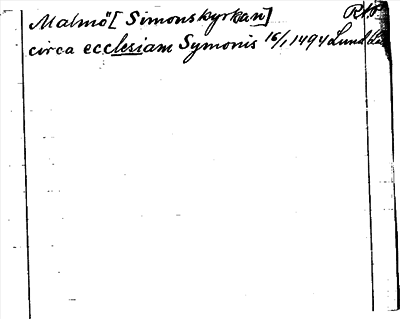 Malmö [Simonskyrkan]
circa ecclesiam Symonis 16/1 1494 Lund